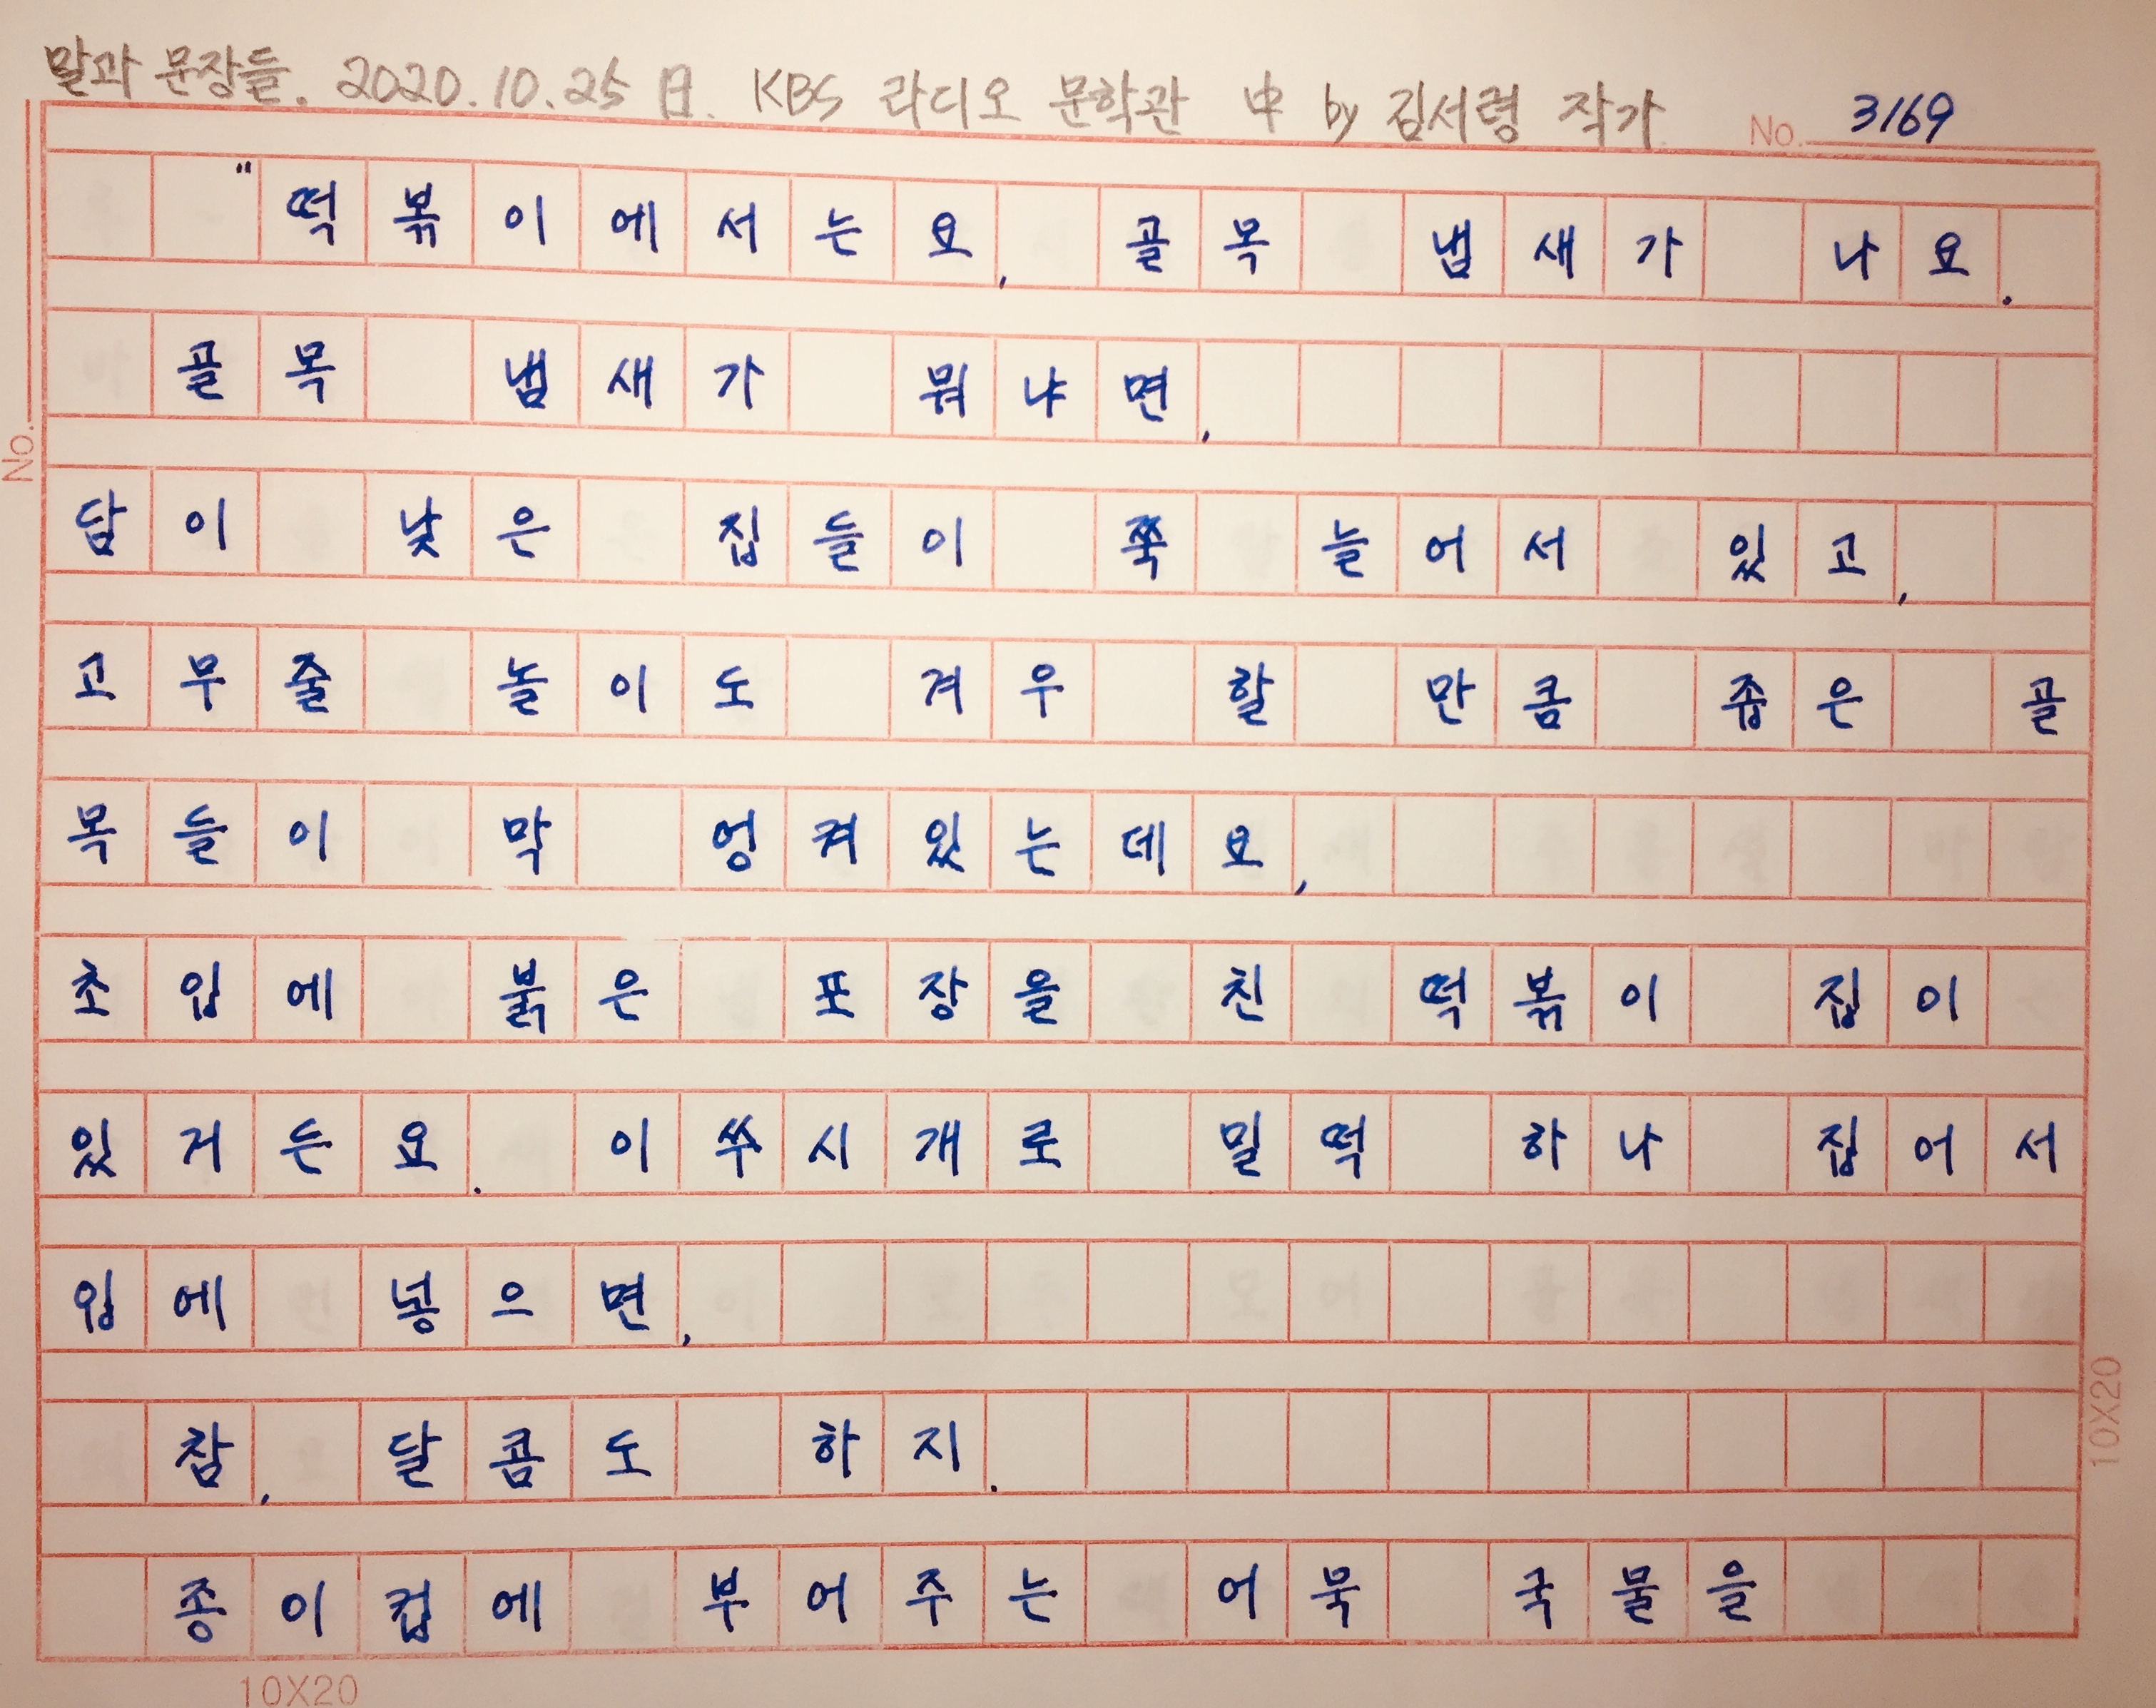 말과 문장들. 2020.10.25 日. KBS 라디오 문학관 中 by 김서령 작가 No. 3169
"떡볶이에서는요, 골목 냄새가 나요.
골목 냄새가 뭐냐면,
담이 낮은 집들이 쭉 늘어서 있고,
고무줄 놀이도 겨우 할 만큼 좁은 골
목들이 막 엉켜있는데요,
초입에 붉은 포장을 친 떡볶이 집이
있거든요. 이쑤시개로 밀떡 하나 집어서
입에 넣으면,
참, 달콤도 하지.
종이컵에 부어주는 어묵 국물을
No.
10X20
10X20